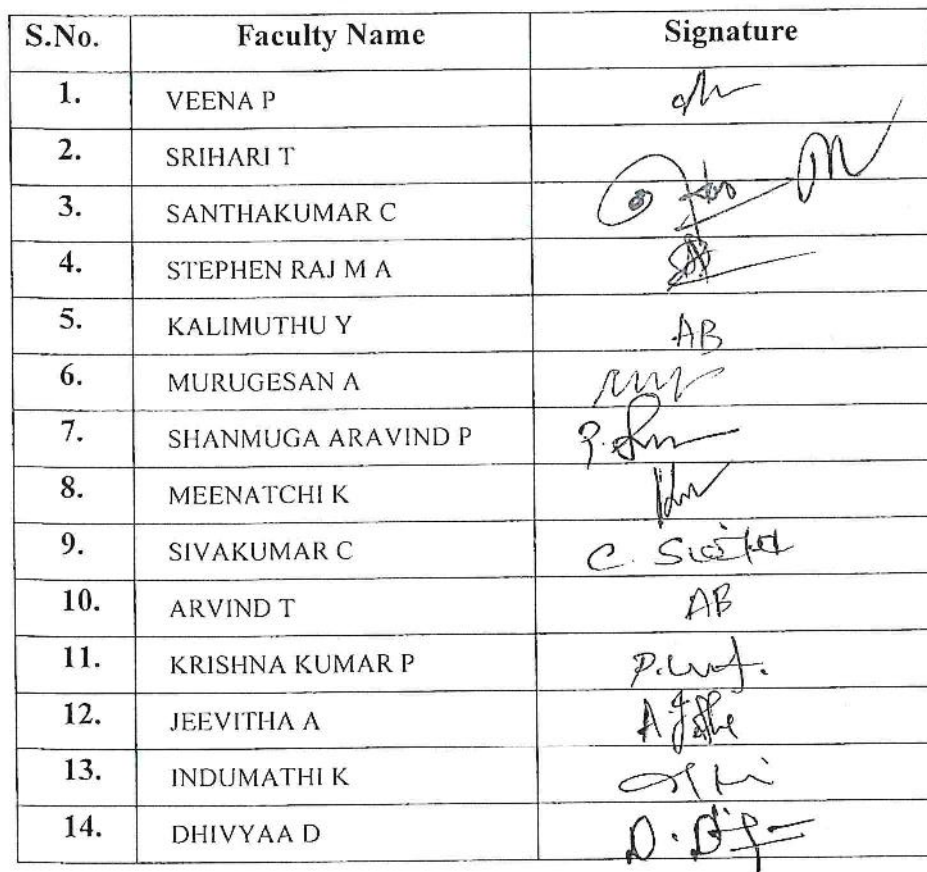 S.No. Faculty Name Signature
1. VEENA P
2. SRIHARI T
3. SANTHAKUMAR C
4. STEPHEN RAJ M A
5. KALIMUTHU Y AB
6. MURUGESAN A
7. SHANMUGA ARAVIND P
8. MEENATCHI K
9. SIVAKUMAR C C.
10. ARVIND T AB
11. KRISHNA KUMAR P
12. JEEVITHA A
13. INDUMATHI K
14. DHIVYAA D D.